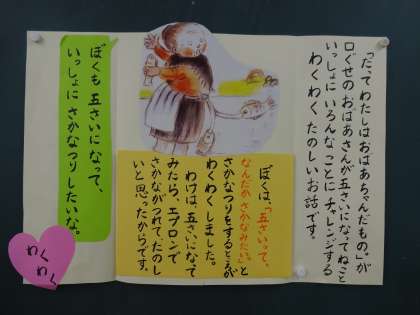 「だってわたしはおばあちゃんだもの。」が
口ぐせのおばあさんが五さいになってねこと
いっしょにいろんなことにチャレンジする
わくわくたのしいお話です。
ぼくは、「五さいって、
なんだかさかなみたい。」と
さかなつりをするところが
わくわくしました。
わけは、五さいになって
みたら、エプロンで
さかながつれて、たのし
いと思ったからです。
ぼくも五さいになって、
いっしょにさかなつりしたいな。
わく
わく